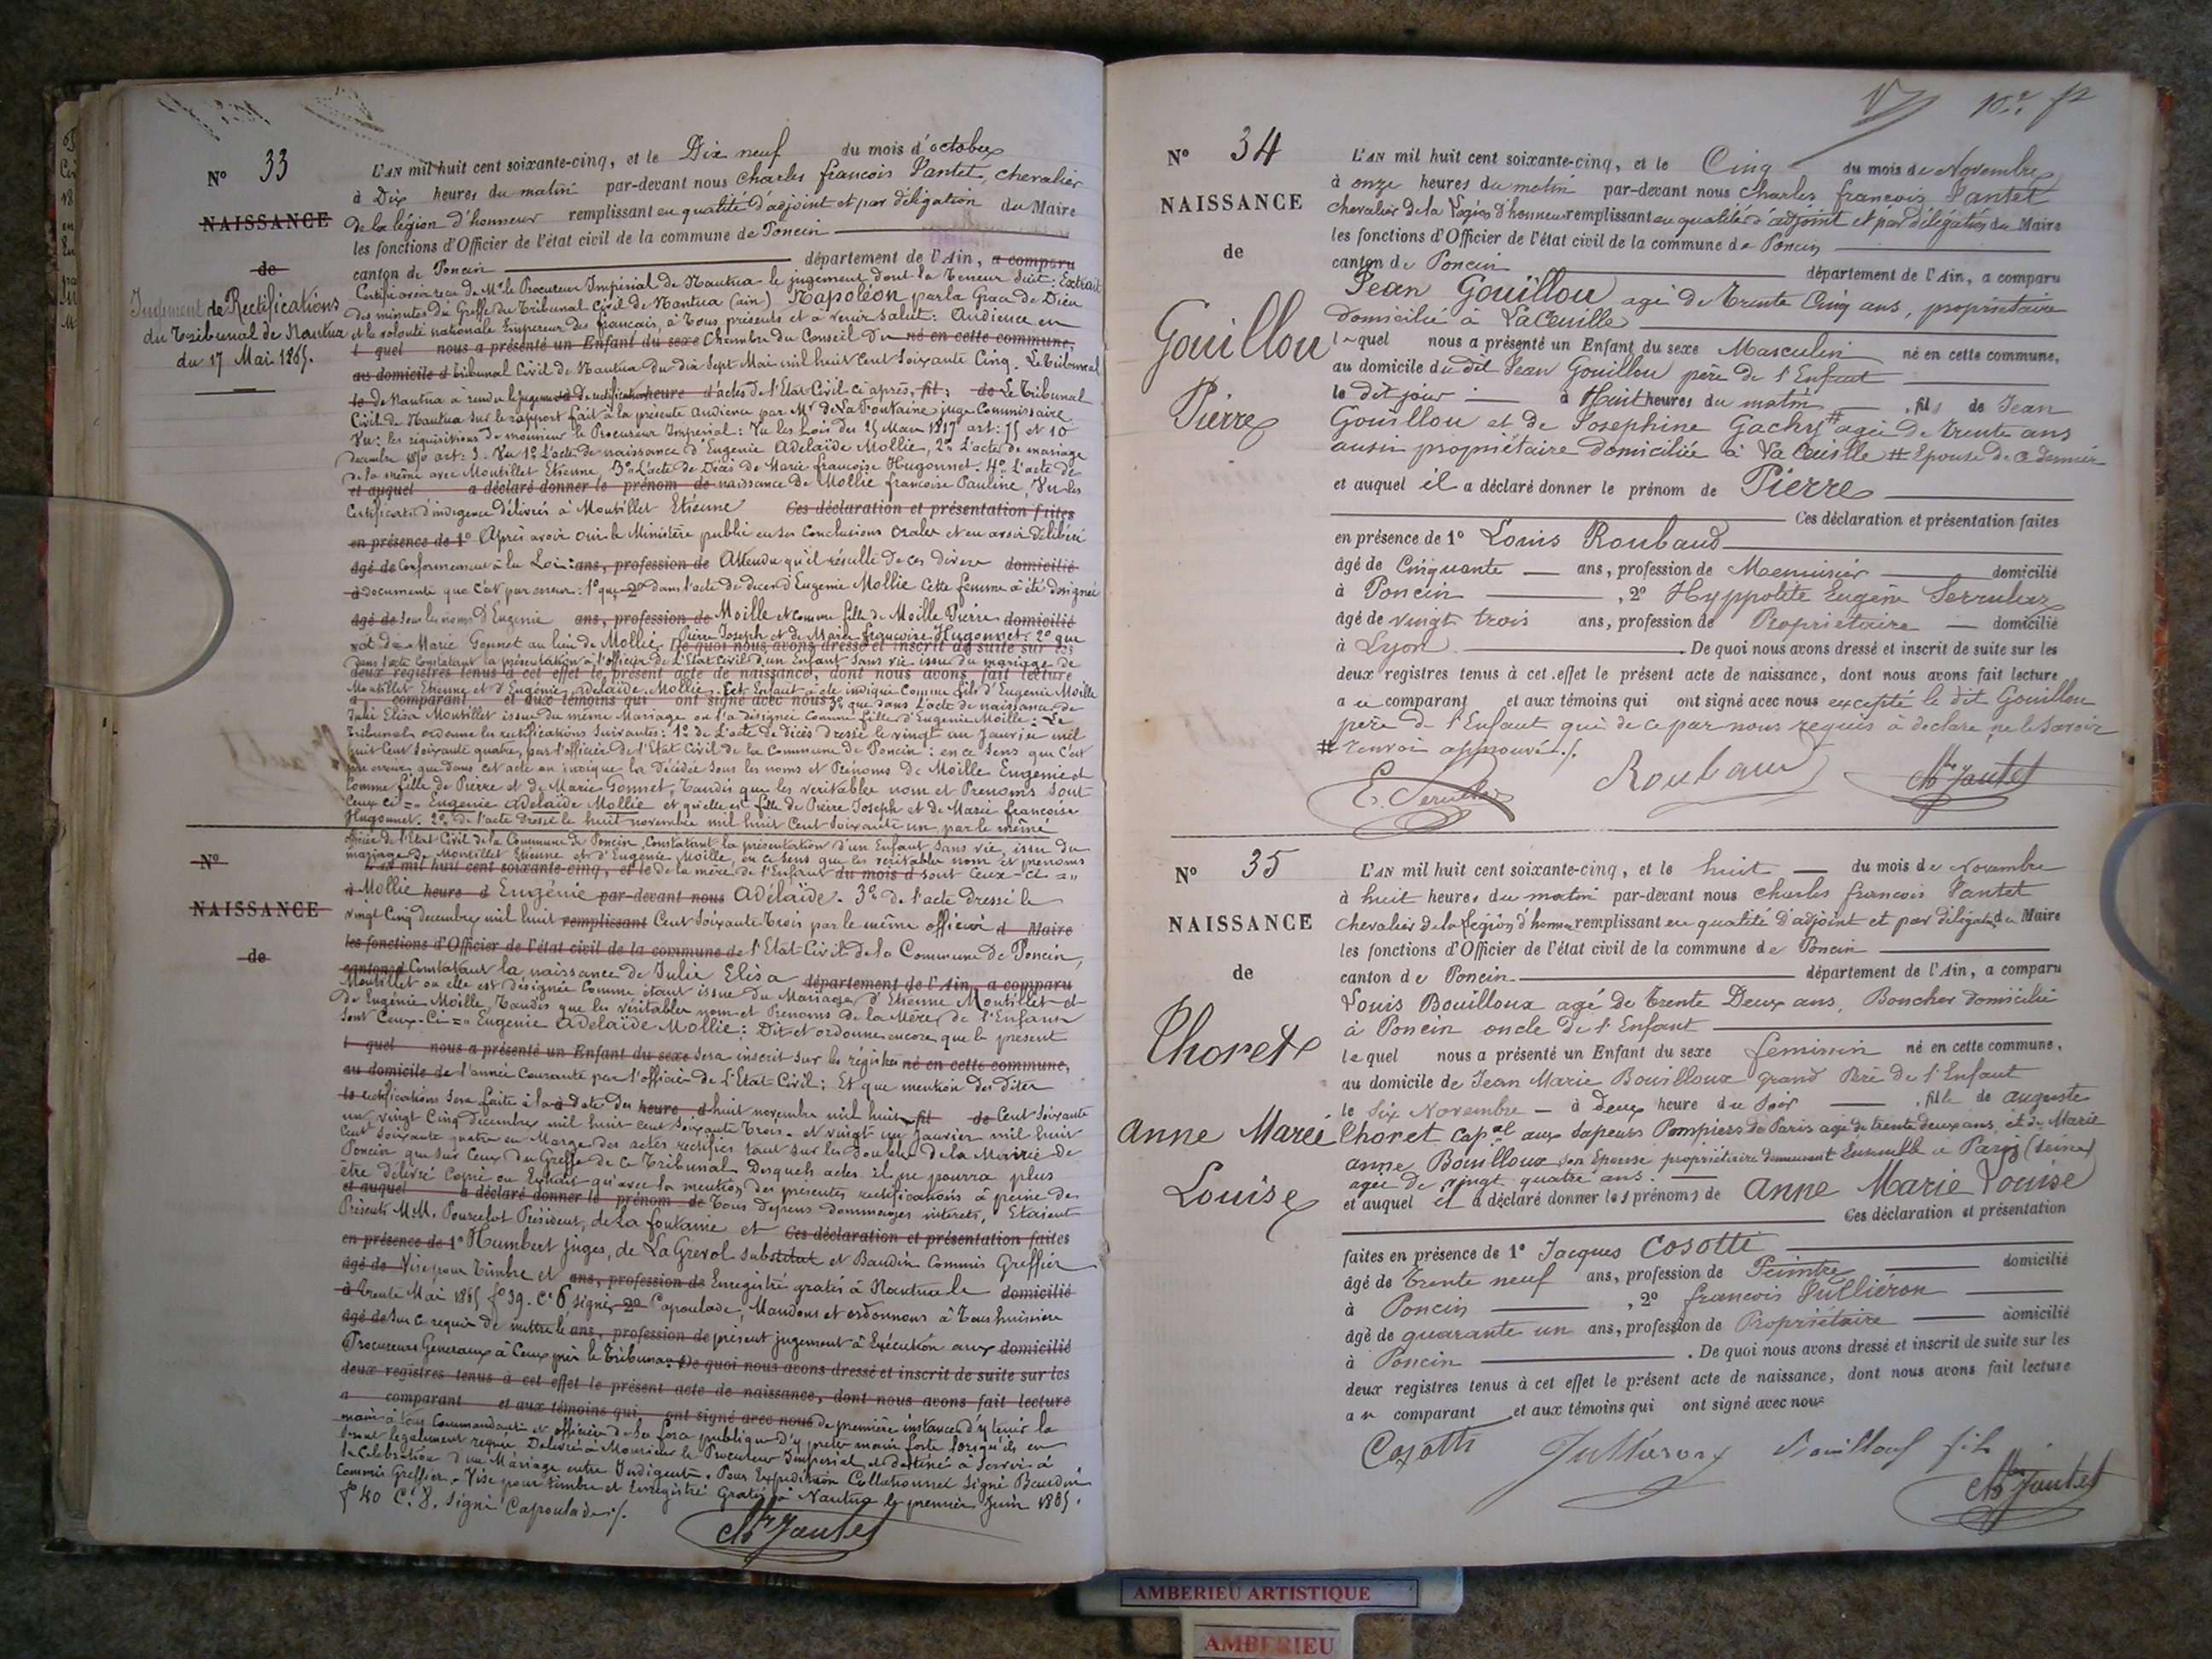 N° 33
NAISSANCE
de
Jugement de Rectifications
du Tribunal de Nantua
du 17 Mai 1865.
L'AN mil huit cent soixante-cinq, et le Dix neuf du mois d'octobre
à Dix heures du matin par-devant nous Charles françois Jantet, chevalier
de la légion d'honneur remplissant en qualité d'adjoint et par délégation du Maire
les fonctions d'Officier de l'état civil de la commune de Poncin
canton de Poncin département de l'Ain, a comparu
Certifie avoir reçu de Mr le Procureur Impérial de Nantua le jugement dont la teneur suit: Extrait
des minutes du Greffe du Tribunal Civil de Nantua (ain) Napoléon par la Grace de Dieu
et la volonté nationale Empereur des français, à Tous présents et à venir Salut: Audience en
l quel nous a présenté un Enfant du sexe Chambre du Conseil du né en cette commune,
au domicile d tribunal Civil de Nantua du dix Sept Mai mil huit Cent Soixante Cinq. Le Tribunal
le de Nantua a rendu le jugement de rectification heure d'actes de l'Etat Civil ci après, fil : de Le Tribunal
Civil de Nantua Sur le rapport fait à la présente audience par Mr de La Fontaine juge Commissaire
Vu: les réquisitions de monsieur le Procureur Impérial: Vu les Lois des 25 Mars 1817 art: 75 et 10
decembre 1850 art: 3. Vu 1° L'acte de naissance d'Eugenie Adelaïde Mollie, 2° L'acte de mariage
de la même avec Montillet Etienne, 3° L'acte de Décès de Marie francoise Hugonnet. 4° L'acte de
et auquel a déclaré donner le prénom de naissance de Mollie francoise Pauline, Vu les
Certificats d'indigence délivrés à Montillet Etienne Ces déclaration et présentation faites
en présence de 1° Après avoir oui le Ministère public en ses Conclusions orales et en avoir délibéré
âgé de Conformement à la Loi: ans, profession de Attendu qu'il résulte de ces divers domicilié
à documents que C'est par erreur: 1° que 2° dans l'acte de décès d'Eugenie Mollie Cette femme a été désignée
âgé de Sous les noms d'Eugenie ans, profession de Moille et Comme fille de Moille Pierre domicilié
et de Marie Gonnet au lieu de Mollie Pierre Joseph et de Marie francoise Hugonnet. 2° que
De quoi nous avons dressé et inscrit de suite sur les
dans l'acte Constatant la présentation à l'officier de L'Etat Civil d'un Enfant Sans vie issu du mariage de
deux registres tenus à cet effet le présent acte de naissance, dont nous avons fait lecture
Montillet Etienne et d'Eugénie Adelaïde Mollie. Cet Enfant a été indiqué Comme fils d'Eugenie Moille
a comparant et aux témoins qui ont signé avec nous 3° que dans L'acte de naissance de
Julie Elisa Montillet issue du même Mariage on l'a désignée Comme fille d'Eugenie Moille: Le
Tribunal ordonne les rectifications Suivantes: 1° de L'acte de décès dressé le vingt un Janvier mil
huit Cent Soixante quatre, par l'officier de l'Etat Civil de la Commune de Poncin: en ce Sens que C'est
par erreur que dans cet acte on indique la Décédée Sous les noms et Prénoms de Moille Eugenie et
Comme fille de Pierre et de Marie Gonnet, Tandis que les veritables nom et Prenoms Sont
Ceux ci =" Eugenie Adelaïde Mollie et qu'elle est fille de Pierre Joseph et de Marie francoise
Hugonnet. 2° de l'acte dressé le huit novembre mil huit Cent Soixante un par le même
N°
NAISSANCE
de
officier de l'Etat Civil de la Commune de Poncin, Constatant la présentation d'un Enfant Sans vie, issu du
mariage de Montillet Etienne et d'Eugénie Moille, en ce Sens que les veritables nom et prenoms
L'AN mil huit cent soixante-cinq, et le de la mère de l'Enfant du mois d sont Ceux-ci ="
à Mollie heure d Eugénie par-devant nous Adélaïde. 3° de l'acte Dressé le
vingt Cinq decembre mil huit remplissant Cent Soixante Trois par le même officier d Maire
les fonctions d'Officier de l'état civil de la commune de l'Etat Civil de la Commune de Poncin,
canton d Constatant la naissance de Julie Elisa département de l'Ain, a comparu
Montillet ou elle est désignée Comme étant issue du Mariage d'Etienne Montillet et
de Eugénie Moille, Tandis que les véritables nom et Prenoms de la Mère de l'Enfant
Sont Ceux-Ci =" Eugenie Adelaïde Mollie: Dit et ordonne encore que le present
l quel nous a présenté un Enfant du sexe Sera inscrit sur les régistres né en cette commune,
au domicile de l'année Courante par l'officier de L'Etat Civil: Et que mention des dites
le rectifications Sera faite à la à Date des heure d huit novembre mil huit fil de Cent Soixante
un, vingt Cinq Decembre mil huit Cent Soixante Trois. et vingt un Janvier mil huit
Cent Soixante quatre en Marge des actes rectifiés tant sur les doubles de la Mairie de
Poncin que Sur Ceux du Greffe de Ce Tribunal Desquels actes il ne pourra plus
être délivré Copie ou Extrait qu'avec la mention des présentes rectifications à peine de
et auquel a déclaré donner le prénom de Tous depens dommages interets. Etaient
Présents M.M. Pourcelot Président, de La fontaine et Ces déclaration et présentation faites
en présence de 1° Humbert juges, de La Grevol substitut et Baudin Commis Greffier
âgé de Visé pour Timbre et ans, profession de Enregistré gratis à Nantua le domicilié
à Trente Mai 1865 f° 39. C° 6 Signé 2° Capoulade; Mandons et ordonnons à Tous huissiers
âgé de Sur ce requis de mettre le ans, profession de présent jugement à Exécution aux domicilié
Procureurs Generaux à Ceux près le Tribunaux De quoi nous avons dressé et inscrit de suite sur les
deux registres tenus à cet effet le présent acte de naissance, dont nous avons fait lecture
a comparant et aux témoins qui ont signé avec nous de première instance d'y tenir la
main à tous Commandants et officiers de la force publique d'y preter main forte lorsqu'ils en
Seront légalement requis Delivré à Monsieur le Procureur Impérial et destiné à Servir à
la Celebration d'un Mariage entre Indigents. Pour Expedition Collationnée Signé Baudin
Commis Greffier. Visé pour timbre et Enregistré Gratis à Nantua le premier Juin 1865.
f° 40 C. 8. Signé Capoulade ./.
Chs Jantet
10e f°
N° 34
NAISSANCE
de
Gouillou
Pierre
L'AN mil huit cent soixante-cinq, et le Cinq du mois de Novembre
à onze heures du matin par-devant nous Charles françois Jantet
chevalier de la Légion d'honneur remplissant en qualité d'adjoint et par délégation du Maire
les fonctions d'Officier de l'état civil de la commune de Poncin
canton de Poncin département de l'Ain, a comparu
Jean Gouillou agé de Trente Cinq ans, propriétaire
domicilié à La Cueille
lequel nous a présenté un Enfant du sexe Masculin né en cette commune,
au domicile du dit Jean Gouillou père de l'Enfant
le dit jour à Huit heures du matin, fils de Jean
Gouillou et de Josephine Gachy # agée de trente ans
aussi propriétaire domiciliée à La Cueille # Epouse de ce dernier
et auquel il a déclaré donner le prénom de Pierre
Ces déclaration et présentation faites
en présence de 1° Louis Roubaud
âgé de Cinquante ans, profession de Menuisier domicilié
à Poncin, 2° Hyppolite Eugène Serrulaz
âgé de vingt trois ans, profession de Propriétaire domicilié
à Lyon. De quoi nous avons dressé et inscrit de suite sur les
deux registres tenus à cet effet le présent acte de naissance, dont nous avons fait lecture
au comparant et aux témoins qui ont signé avec nous excepté le dit Gouillou
père de l'Enfant qui de ce par nous requis à déclaré ne le Savoir
# renvoi approuvé ./.
E. Serullaz Roubaud Chs Jantet
N° 35
NAISSANCE
de
Thoret
Anne Marie
Louise
L'AN mil huit cent soixante-cinq, et le huit du mois de Novembre
à huit heures du matin par-devant nous Charles françois Jantet
Chevalier de la Légion d'honneur remplissant en qualité d'adjoint et par délégation du Maire
les fonctions d'Officier de l'état civil de la commune de Poncin
canton de Poncin département de l'Ain, a comparu
Louis Bouilloux agé de Trente Deux ans, Boucher domicilié
à Poncin oncle de l'Enfant
lequel nous a présenté un Enfant du sexe féminin né en cette commune,
au domicile de Jean Marie Bouilloux Grand Père de l'Enfant
le Six Novembre à deux heure du Soir, fille de Auguste
Thoret Capal aux Sapeurs Pompiers de Paris agé de trente deux ans, et de Marie
Anne Bouilloux son Epouse propriétaire demeurant Ensemble à Paris (Seine)
agée de vingt quatre ans.
et auquel il a déclaré donner les prénoms de Anne Marie Louise
Ces déclaration et présentation
faites en présence de 1° Jacques Cosotti
âgé de Trente neuf ans, profession de Peintre domicilié
à Poncin, 2° françois Julliéron
âgé de quarante un ans, profession de Propriétaire domicilié
à Poncin. De quoi nous avons dressé et inscrit de suite sur les
deux registres tenus à cet effet le présent acte de naissance, dont nous avons fait lecture
au comparant et aux témoins qui ont signé avec nous
Cosotti Julliéron Bouilloux fils
Chs Jantet
AMBERIEU ARTISTIQUE
AMBERIEU